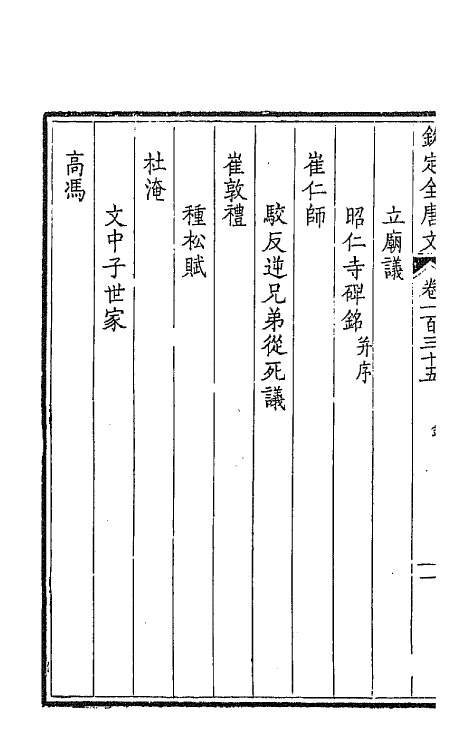 欽定全唐文 卷一百三十五
立廟議
昭仁寺碑銘 并序
崔仁師
駮反逆兄弟從死議
崔敦禮
種松賦
杜淹
文中子世家
高馮